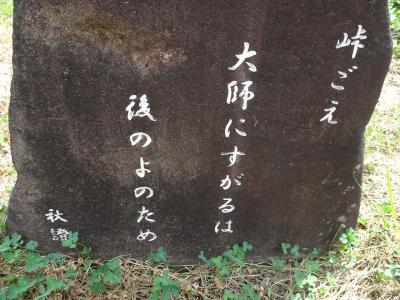 峠ごえ
大師にすがるは
後のよのため
秋證